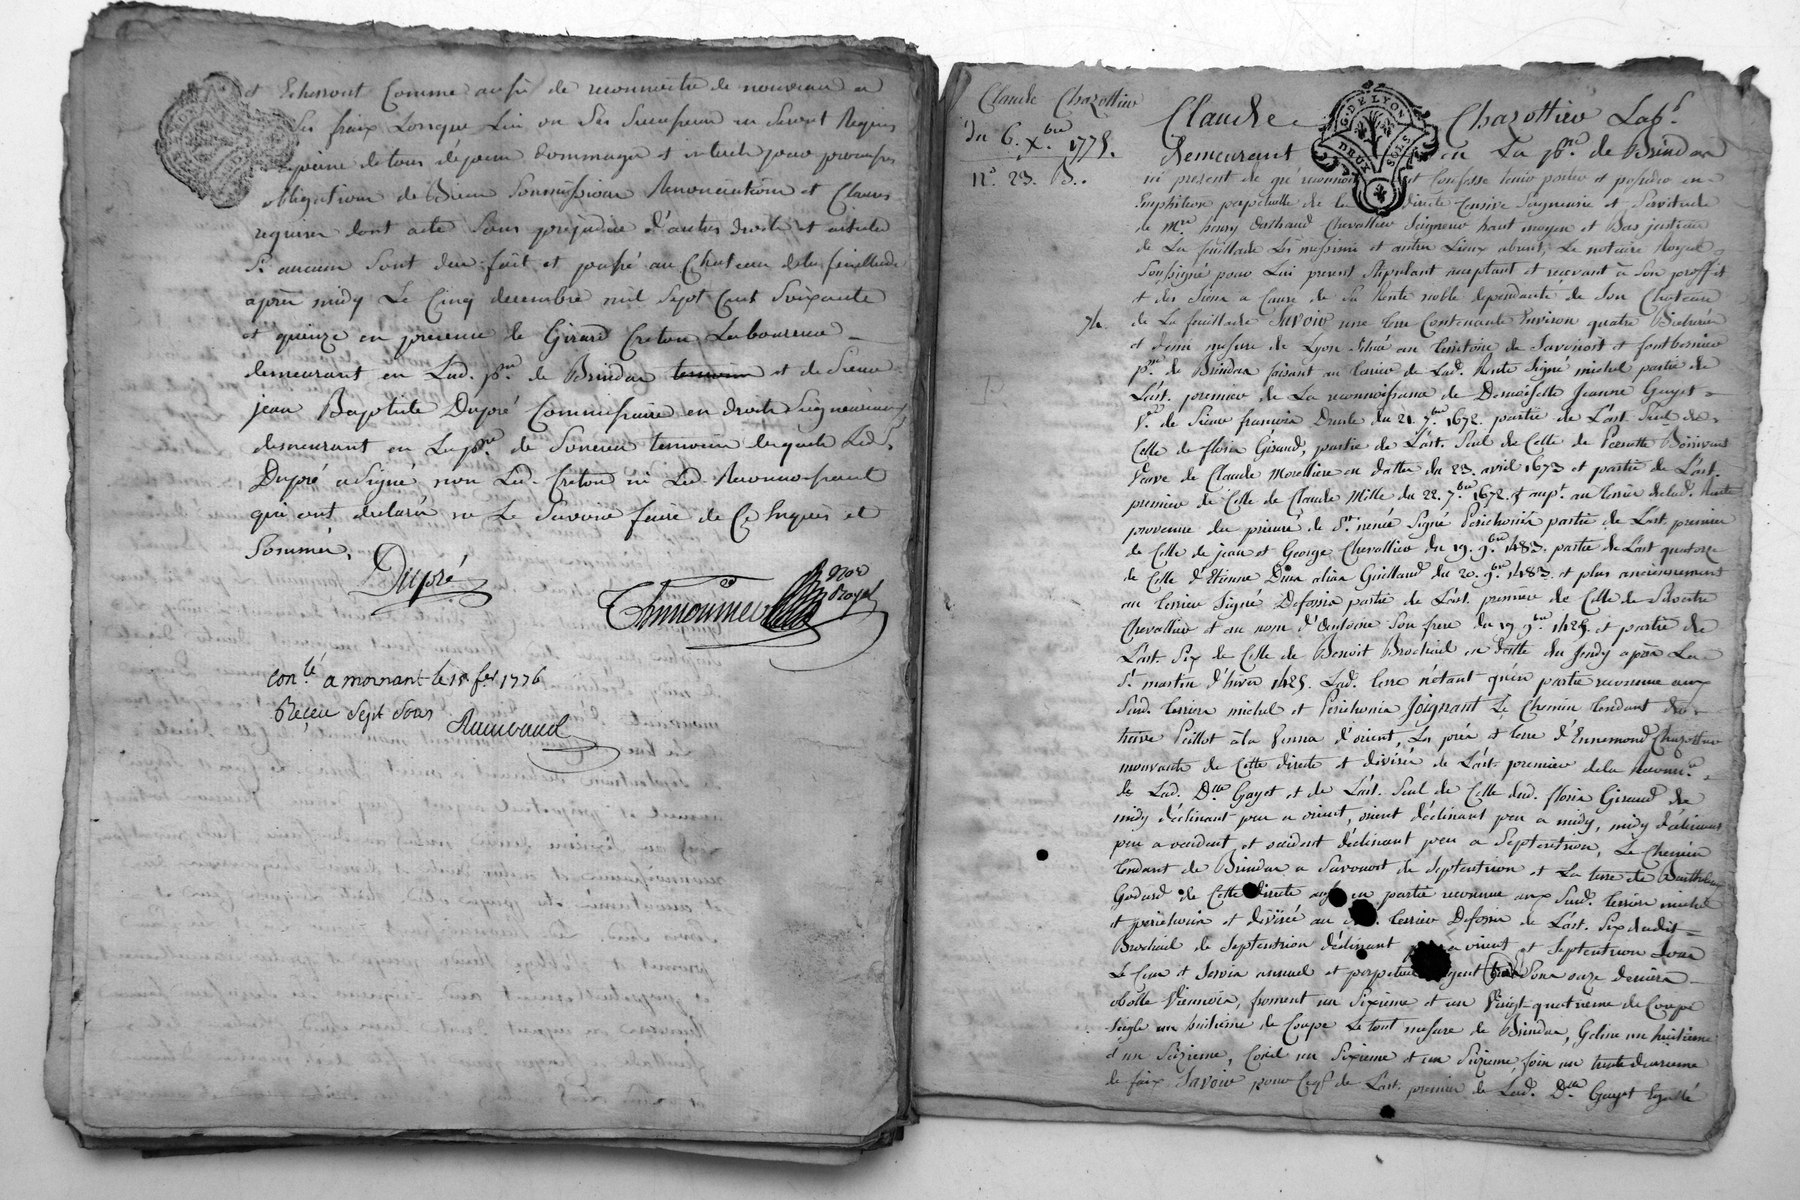 et Echerront Comme aussi de reconnoitre de nouveau a
Ses fraix Lorsque Lui ou Ses Successeurs en Seront Requis
a peine de tous dépens dommages et interets pour promesses
obligations de Biens Soumissions Renonciations et Clauses
requises dont acte Sans préjudice d'autres droits et articles
Sy aucuns Sont dus fait et passé au Chateau de la feuillade
après midy Le Cinq decembre mil Sept Cent Soixante
et quinze en presence de Girard Creton Laboureur
demeurant en Lad. psse. de Brindas temoin et de Sieur
jean Baptiste Dupré Commissaire en droits Seigneuriaux
demeurant en La psse. de temoins lesquels Led. Sr.
Dupré a Signé non Led. Creton ni Led. Reconnoissant
qui ont declaré ne Le Savoir faire de Ce Enquis et
Sommés.
Dupré
not. Royal
con.lé a mornant le 15 fer. 1776
Reçeu Sept Sous
Claude Chazottier
du 6. Xbre 1775.
n.° 23. B.
G. DE LYON
DEUX SOLS
Claude Chazottier Lab.r
demeurant en La psse. de Brindas
ici present de gré reconnoit et Confesse tenir porter et posseder en
Emphiteose perpetuelle de la directe Censive Seigneurie et Servitude
de Mre. henry Chevallier Seigneur haut moyen et Bas justicier
de La feuillade Les messimi et autres Lieux absent, Le notaire Royal
Soussigné pour Lui present Stipulant acceptant et recevant a Son proffit
et des Siens a Cause de Sa Rente noble dependante de Son Chateau
de La feuillade Savoir une terre Contenante Environ quatre Bicherées
et demi mesure de Lyon Située au territoire de Savonost et fontbernier
psse. de Brindas faisant au terrier de Lad. Rente Signé michel partie de
L'art. premier de La reconnoissance de Demoiselle Jeanne Gayet
Vve. de Sieur francois du 21. 7bre 1672. partie de L'art. Seul de
Celle de floris Giraud, partie de L'art. Seul de Celle de Pernette
Veuve de Claude Morellier en datte du 23. avril 1673 et partie de L'art.
premier de Celle de Claude Mille du 22. 7bre 1672. et aupt. au terrier de lad. Rente
provenue du prieuré de St. renée Signé Perichonis partie de L'art. premier
de Celle de jean et George Chevallier du 19. 9bre 1483. partie de L'art quatorze
de Celle d'Etienne alias Guilland du 20. 9bre 1483. et plus anciennement
au terrier Signé Defossis partie de L'art. premier de Celle de Silvestre
Chevallier et au nom d'Antoine Son frere du 19 9bre 1425. et partie de
L'art. Six de Celle de Benoit Brochail en datte du Jeudy après La
St. martin d'hiver 1425. Lad. terre n'étant qu'en partie reconnue aux
Susd. terriers michel et Perichonis Joignant Le Chemin tendant de
Peillot à la d'orient, Les prés et terre d'Ennemond Chazottier
mouvants de Cette directe et divisés de L'art. premier de la reconn.ce
de Lad. Dlle Gayet et de L'art. Seul de Celle dud. floris Giraud de
midy déclinant peu a orient, orient déclinant peu a midy, midy déclinant
peu a occident et occident déclinant peu a Septentrion, Le Chemin
tendant de Brindas a Savonost de Septentrion et La terre de Barthelemy
Godard de Cette directe aussi en partie reconnue aux Susd. terriers michel
et perichonis et divisée au terrier Defossis de L'art. Six dudit
Brochail de Septentrion déclinant a orient et Septentrion Sous
Le Cens et Servis annuel et perpetuel argent trois Sous onze deniers
obolle Viennois, froment un Sixieme et un Vingt-quatrieme de Coupe
Seigle un huitieme de Coupe Le tout mesure de Brindas, Geline un huitieme
et un Seizieme, Civil un Sixieme et un Seizieme, foin un trente deuxieme
de faix Savoir pour de L'art. premier de Lad. Dlle Gayet